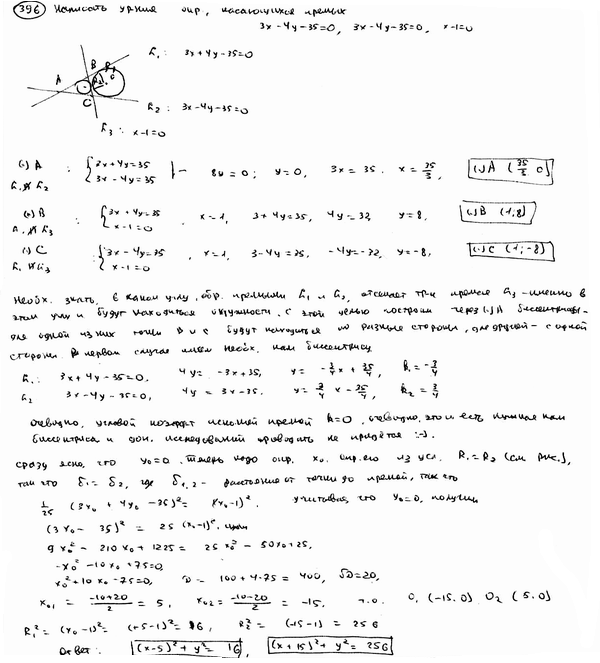 396 Написать ур-ния окр, касающихся прямых
3x-4y-35=0, 3x-4y-35=0, x-1=0
h₁: 3x+4y-35=0
B R₁
A R₂ O
C
h₂: 3x-4y-35=0
h₃: x-1=0
(·) A : { 3x+4y=35 3x-4y=35 }- 8y=0; y=0, 3x=35. x=35/3, (·)A (35/3 0)
(·) B : { 3x+4y=35 x-1=0 , x=1, 3+4y=35, 4y=32, y=8, (·)B (1;8)
(·) C : { 3x-4y=35 x-1=0 , x=1, 3-4y=35, -4y=-32, y=-8, (·)C (1;-8)
Необх. знать, в каком углу, обр. прямыми h₁ и h₂, отсекает три прямая h₃ - именно в
этом углу и будут находиться окружности. С этой целью построим через (·)A биссектрисы -
для одной из них точки B и C будут находиться по разные стороны, для другой - с одной
стороны. В первом случае имеем необх. нам биссектрису
h₁: 3x+4y-35=0, 4y=-3x+35, y=-3/4x+35/4, k₁=-3/4
h₂ 3x-4y-35=0, 4y=3x-35. y=3/4x-35/4, k₂=3/4
очевидно, угловой коэффт искомой прямой k=0, очевидно, это и есть нужная нам
биссектриса и доп. исследований проводить не придётся :-).
сразу ясно, что y₀=0. теперь надо опр. x₀. опр. его из усл. R₁=R₂ (см рис.),
так что δ₁=δ₂, где δ₁,₂ - расстояние от точки до прямой, так что
1/25 (3x₀+4y₀-35)²= (x₀-1)². учитывая, что y₀=0, получим
(3x₀-35)² = 25(x₀-1)², или
9x₀²-210x₀+1225=25x₀²-50x₀+25,
-x₀²-10x₀+75=0,
x₀²+10x₀-75=0, D=100+4·75=400, √D=20,
x₀₁ = (-10+20)/2 = 5, x₀₂ = (-10-20)/2 = -15, т.о. O₁(-15.0) O₂(5.0)
R₁²=(x₀-1)²=(+5-1)²=16, R₂²=(-15-1)=256
Ответ: (x-5)²+y²=16, (x+15)²+y²=256